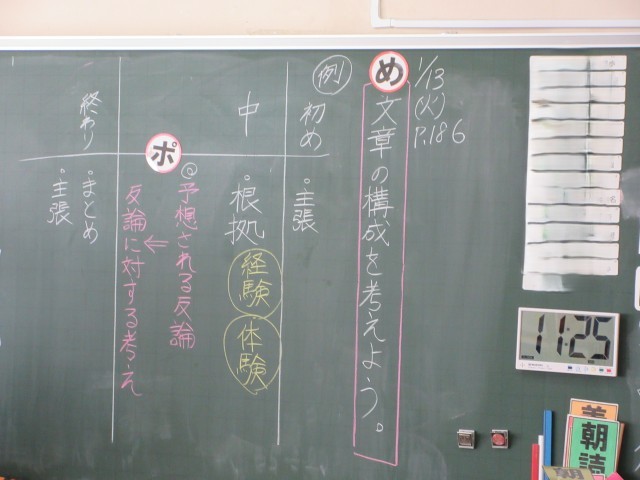 1/13
(火)
P.186
め
文章の構成を考えよう。
例
初め
・主張
中
・根拠
経験
・体験
@予想される反論
ポ
反論に対する考え
終わり
・まとめ
・主張
11:25
朝読